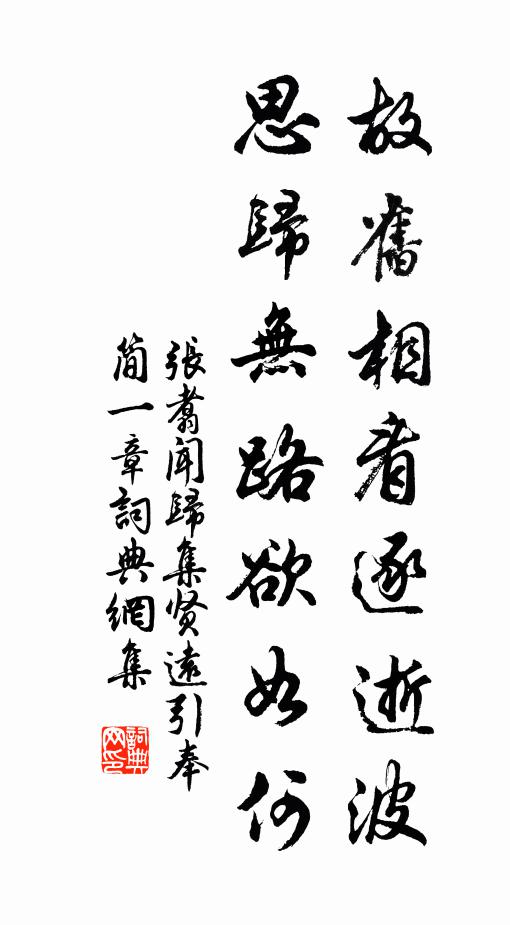 故舊相看逐逝波
思歸無路欲如何
張翥聞歸集贤遠引奉
简一章詞典網集
詞典网印